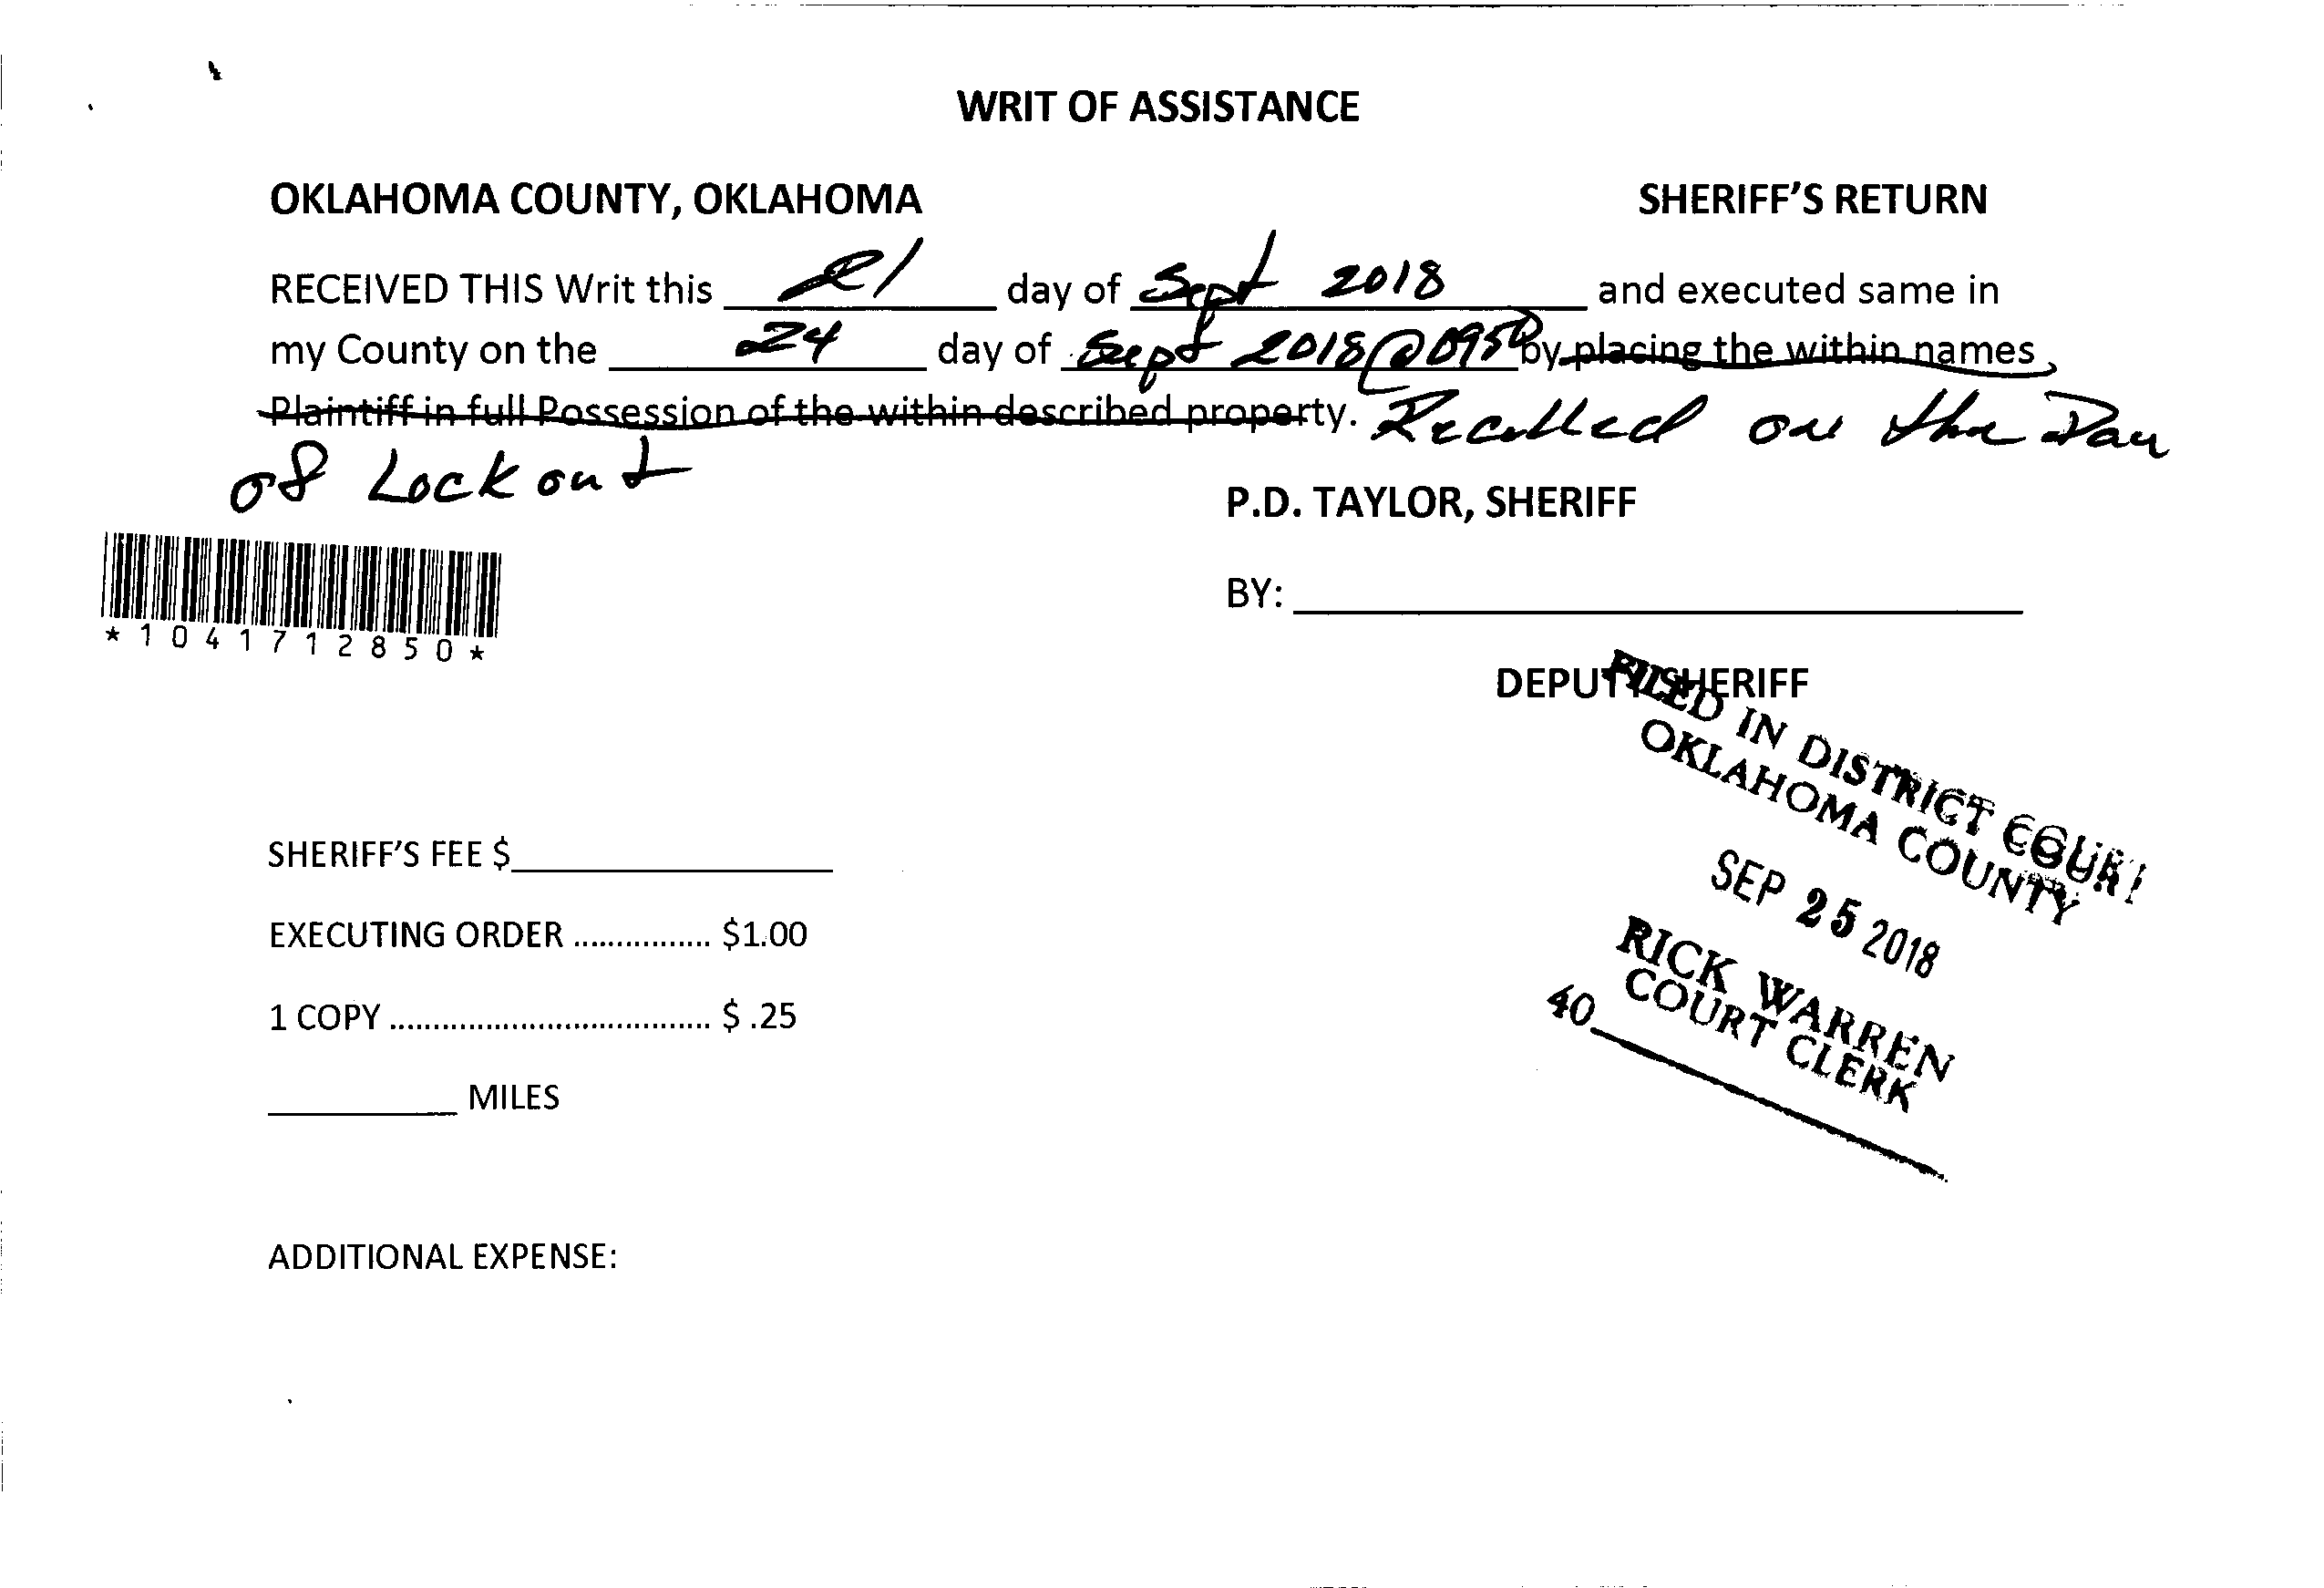 WRIT OF ASSISTANCE
OKLAHOMA COUNTY, OKLAHOMA SHERIFF'S RETURN
RECEIVED THIS Writ this 21 day of Sept 2018 and executed same in
my County on the 24 day of Sept 2018 @ 0950 by placing the within names
Plaintiff in full Possession of the within described property. Recalled on the Day
of Lock out
P.D. TAYLOR, SHERIFF
BY:
*1041712850*
DEPUTY SHERIFF
FILED IN DISTRICT COURT
OKLAHOMA COUNTY
SEP 25 2018
RICK WARREN
COURT CLERK
40
SHERIFF'S FEE $
EXECUTING ORDER ................ $1.00
1 COPY ..................................... $ .25
MILES
ADDITIONAL EXPENSE: